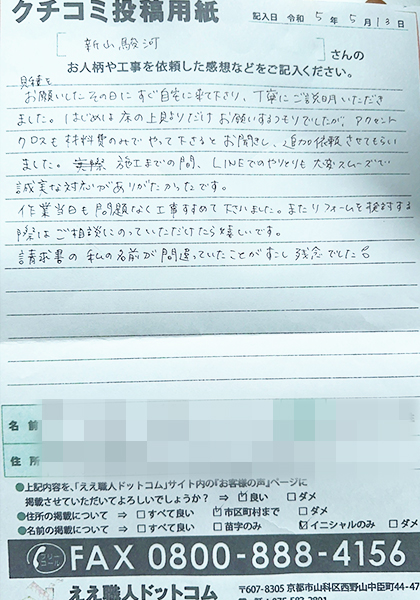 クチコミ投稿用紙
記入日 令和 5年 5月 13日
[新山駿河]さんの
お人柄や工事を依頼した感想などをご記入ください。
見積を
お願いしたその日にすぐ自宅に来て下さり、丁寧にご説明いただき
ました。はじめは床の上貼りだけお願いするつもりでしたが、アクセント
クロスも材料費のみでやって下さるとお聞きし、追加依頼させてもらい
ました。実際 施工までの間、LINEでのやりとりも大変スムーズで
誠実な対応がありがたかったです。
作業当日も問題なく工事すすめて下さいました。またリフォームを検討する
際はご相談にのっていただけたら嬉しいです。
請求書の私の名前が間違っていたことが少し残念でした
名前
住所
●上記内容を、「ええ職人ドットコム」サイト内の『お客様の声』ページに
掲載させていただいてよろしいでしょうか? ⇒ ☑良い □ダメ
●住所の掲載について ⇒ □すべて良い ☑市区町村まで □ダメ
●名前の掲載について ⇒ □すべて良い □苗字のみ ☑イニシャルのみ □ダメ
フリーコール FAX 0800-888-4156
ええ職人ドットコム
〒607-8305 京都市山科区西野山中臣町44-47